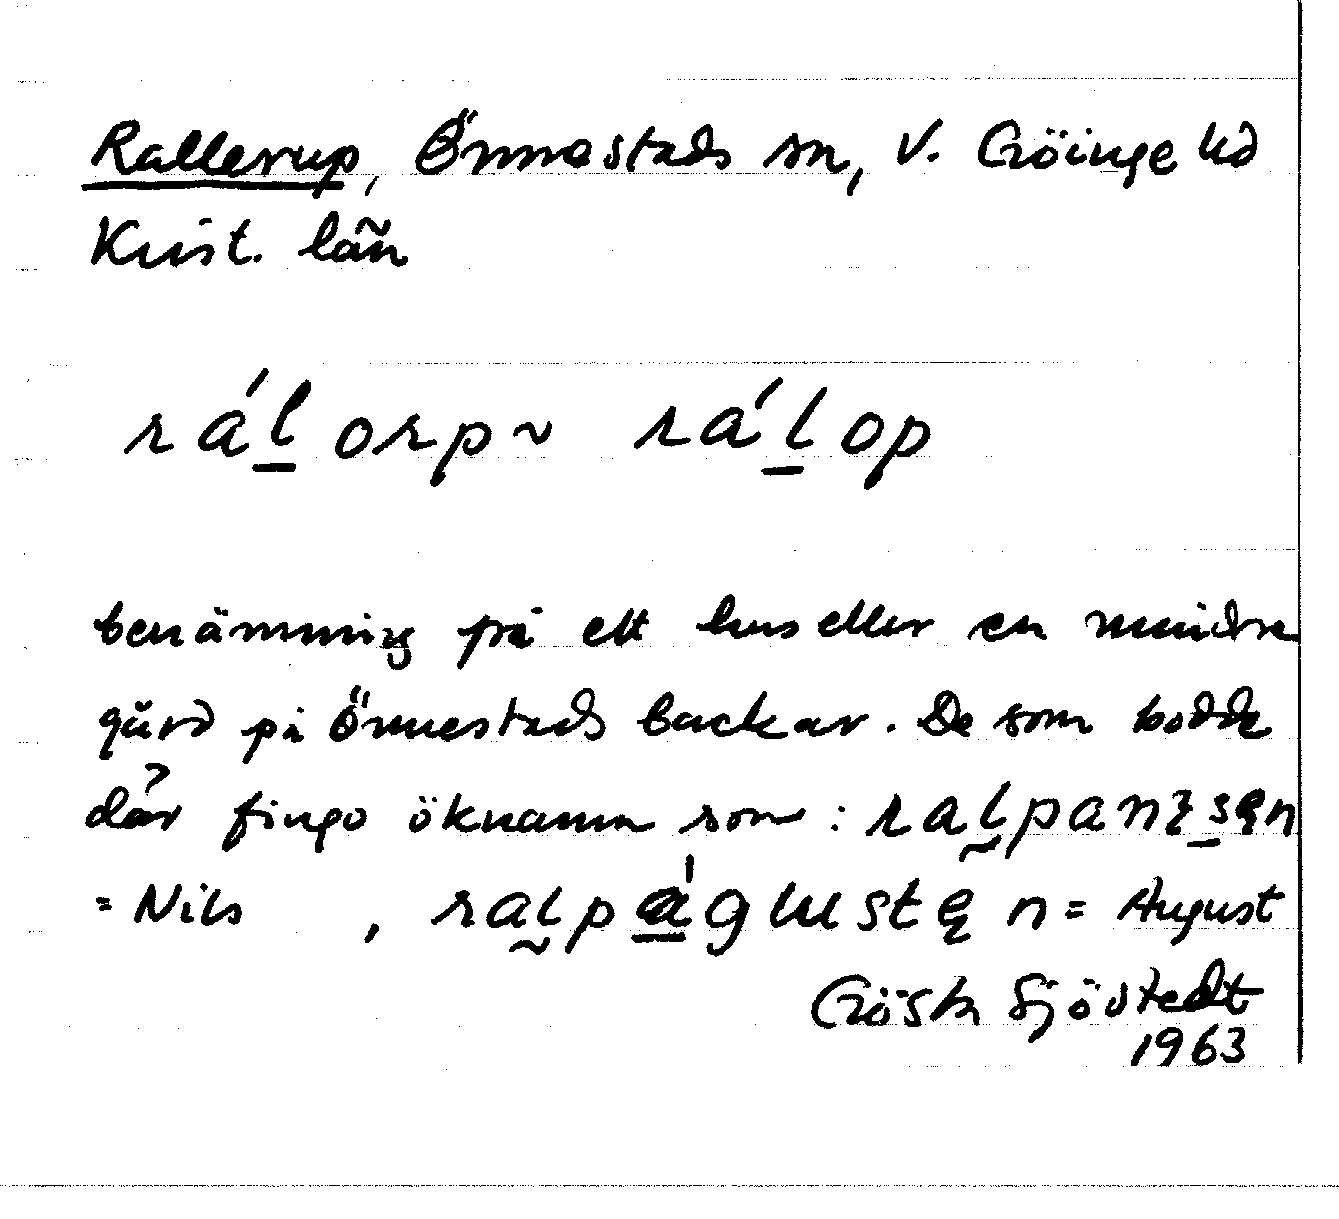 Rallerup, Önnestads sn, V. Göinge hd
Krist. län
rál̲orp ~ rál̲op
benämning på ett hus eller en mindre
gård på Önnestads backar. De som bodde
där fingo öknamn som: ral̰panʒs̲ęn
= Nils , ral̰pa̲̍gɯstęn = August
Gösta Sjöstedt
1963